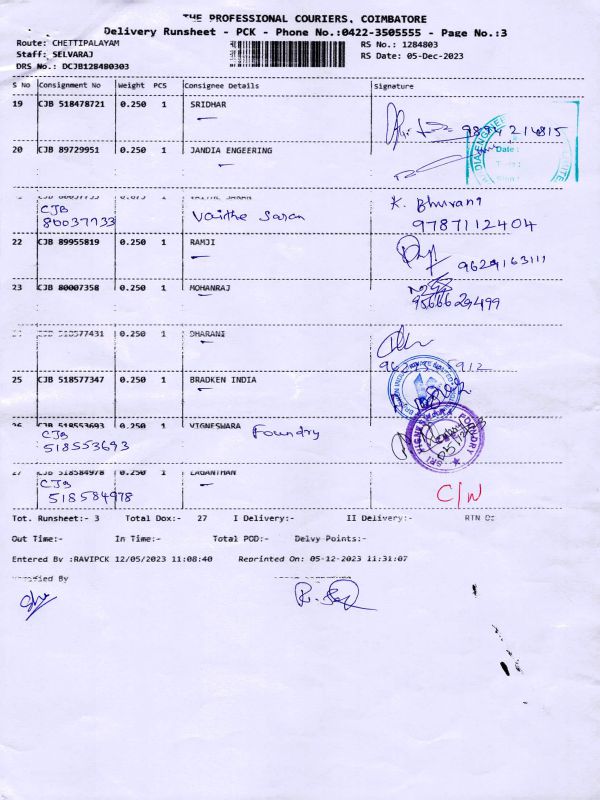 THE PROFESSIONAL COURIERS, COIMBATORE
Delivery Runsheet - PCK - Phone No.:0422-3505555 - Page No.:3
Route: CHETTIPALAYAM RS No.: 1284803
Staff: SELVARAJ RS Date: 05-Dec-2023
DRS No.: DCJB128480303
S No Consignment No Weight PCS Consignee Details Signature
19 CJB 518478721 0.250 1 SRIDHAR
9894214815
20 CJB 89729951 0.250 1 JANDIA ENGEERING
Date :
CJB 80037733 0.075 1 VAITHE SARAN K. Bhuvani
CJB Vaithe Saran
80037733 9787112404
22 CJB 89955819 0.250 1 RAMJI
9629163111
23 CJB 80007358 0.250 1 MOHANRAJ
9566629499
518577431 0.250 1 DHARANI
25 CJB 518577347 0.250 1 BRADKEN INDIA
26 CJB 518553693 0.250 1 VIGNESHWARA
CJB Foundry
518553693
SRI VIGNESHWARA FOUNDRY
27 CJB 518584978 0.250 1
CJB
518584978 C/N
Tot. Runsheet:- 3 Total Dox:- 27 I Delivery:- II Delivery:- RTN D:
Out Time:- In Time:- Total POD:- Delvy Points:-
Entered By :RAVIPCK 12/05/2023 11:08:40 Reprinted On: 05-12-2023 11:31:07
Verified By